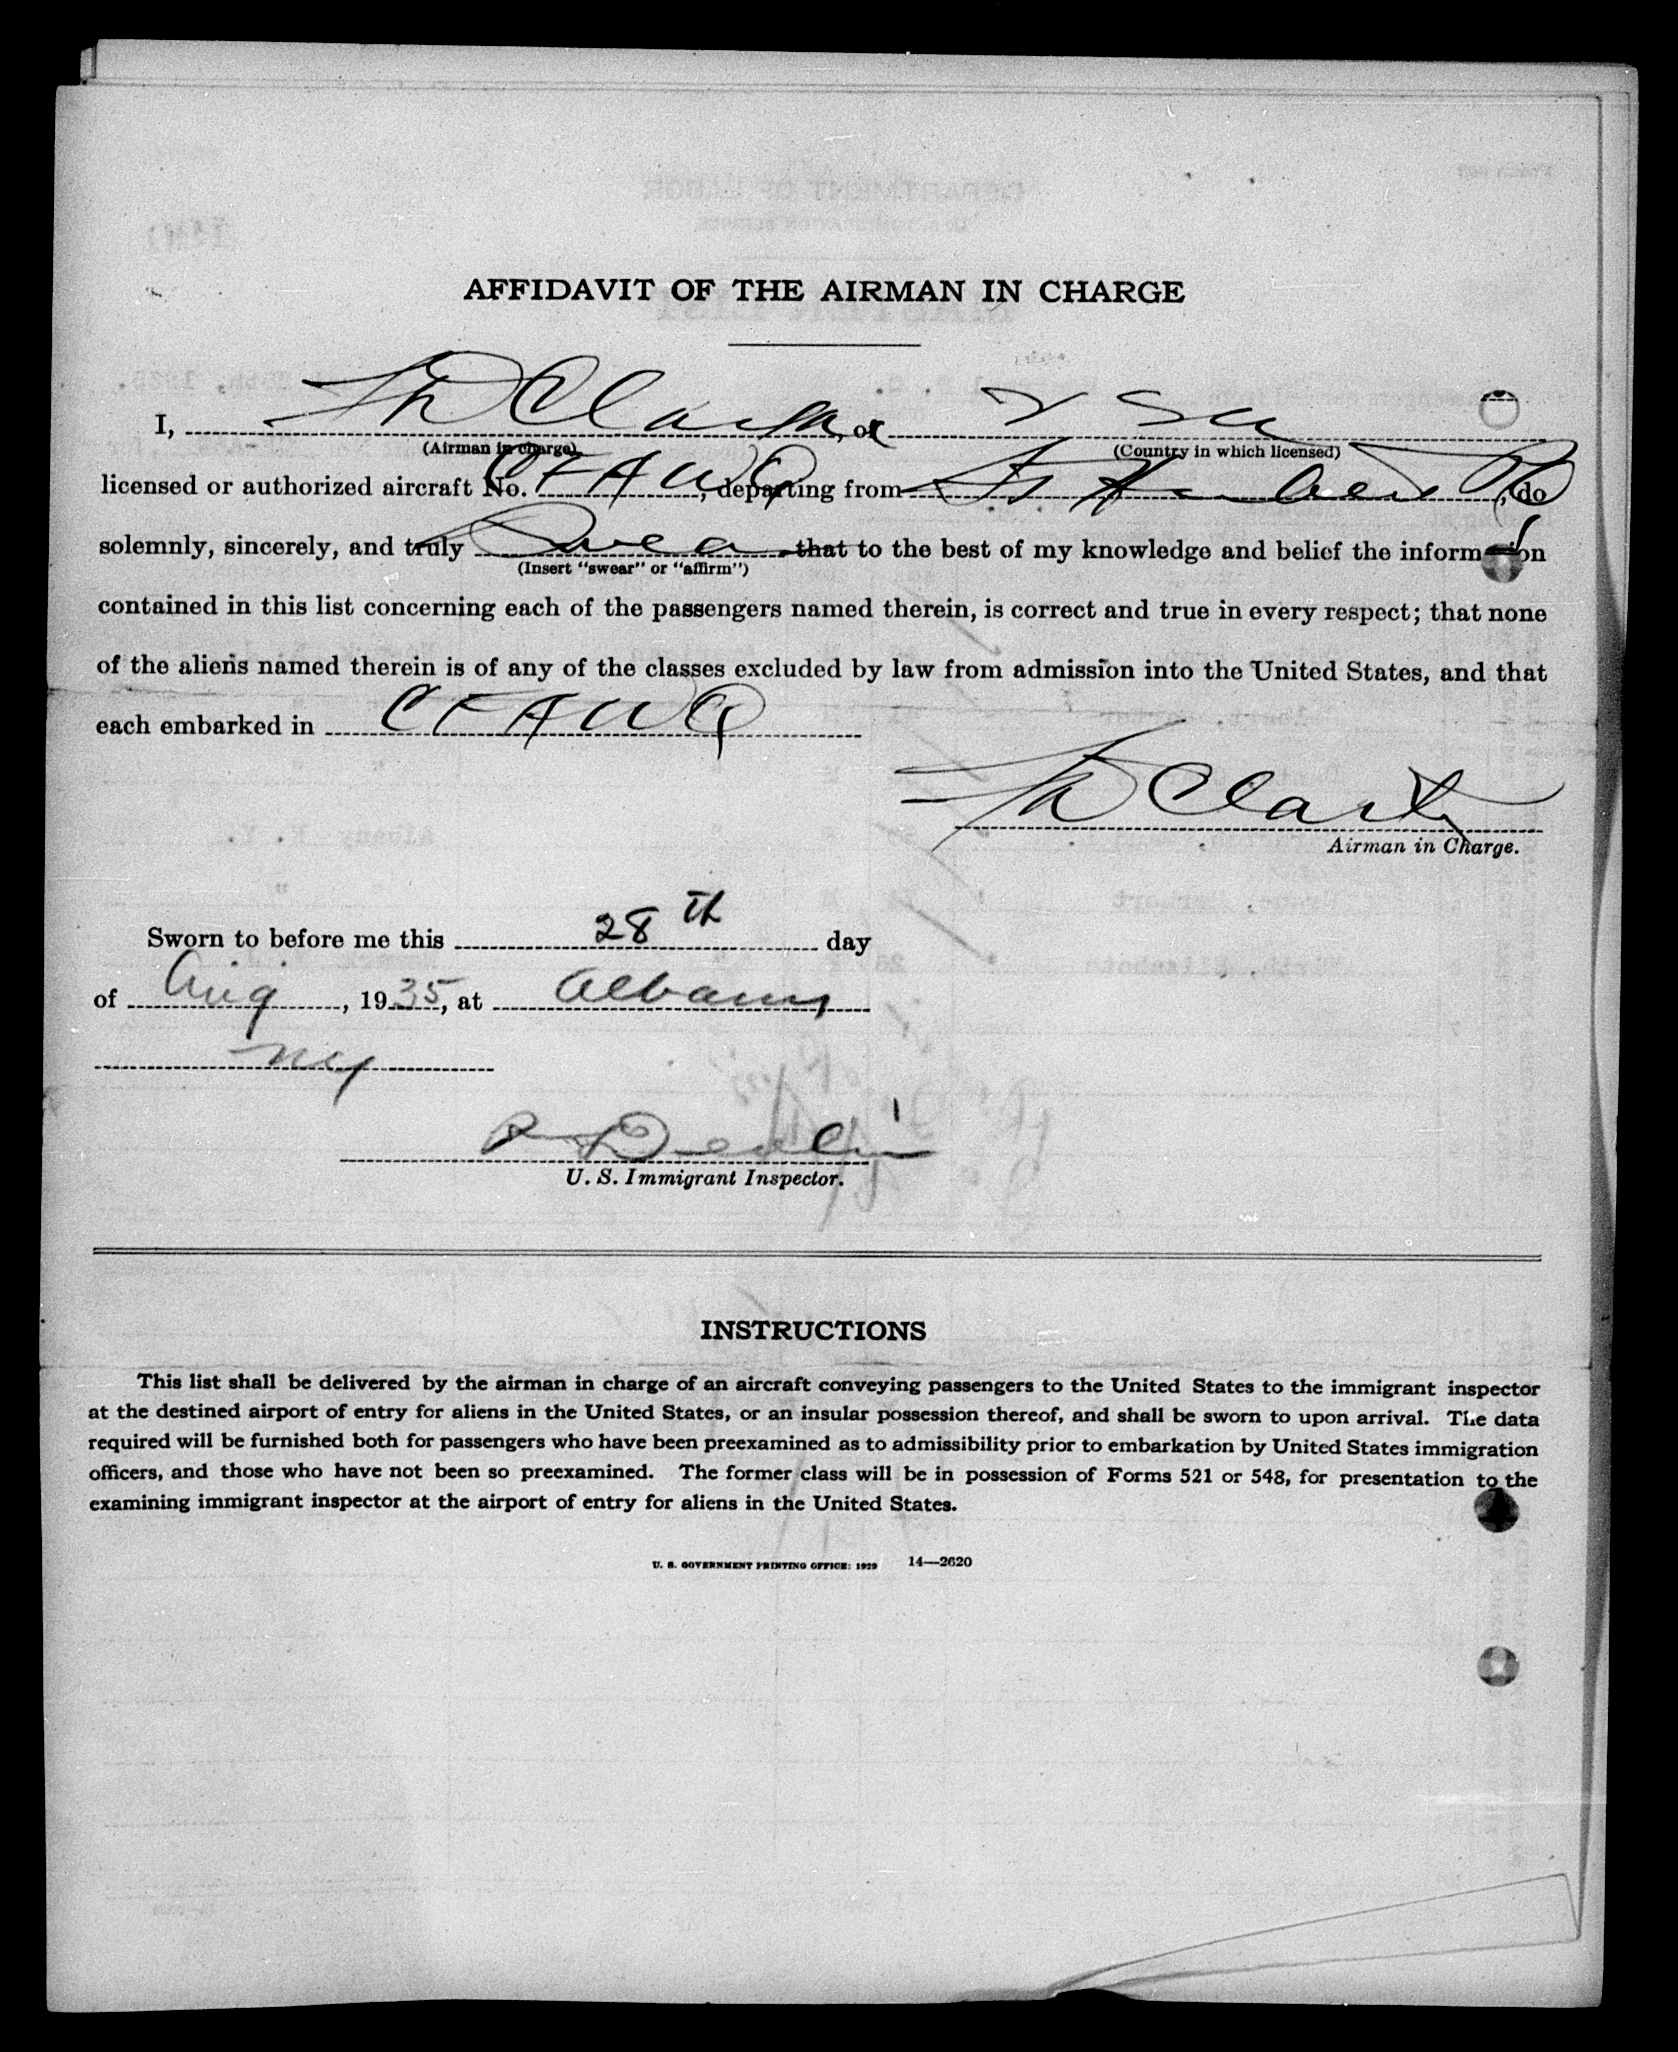 AFFIDAVIT OF THE AIRMAN IN CHARGE
I, Clark, of
(Airman in charge) (Country in which licensed)
licensed or authorized aircraft No. CFAWQ, departing from St Hubert PQ, do
solemnly, sincerely, and truly Swear that to the best of my knowledge and belief the information
(Insert "swear" or "affirm")
contained in this list concerning each of the passengers named therein, is correct and true in every respect; that none
of the aliens named therein is of any of the classes excluded by law from admission into the United States, and that
each embarked in CFAWQ
Clark
Airman in Charge.
Sworn to before me this 28th day
of Aug, 1935, at Albany
NY
Devlin
U. S. Immigrant Inspector.
INSTRUCTIONS
This list shall be delivered by the airman in charge of an aircraft conveying passengers to the United States to the immigrant inspector
at the destined airport of entry for aliens in the United States, or an insular possession thereof, and shall be sworn to upon arrival. The data
required will be furnished both for passengers who have been preexamined as to admissibility prior to embarkation by United States immigration
officers, and those who have not been so preexamined. The former class will be in possession of Forms 521 or 548, for presentation to the
examining immigrant inspector at the airport of entry for aliens in the United States.
U. S. GOVERNMENT PRINTING OFFICE: 1929 14—2620